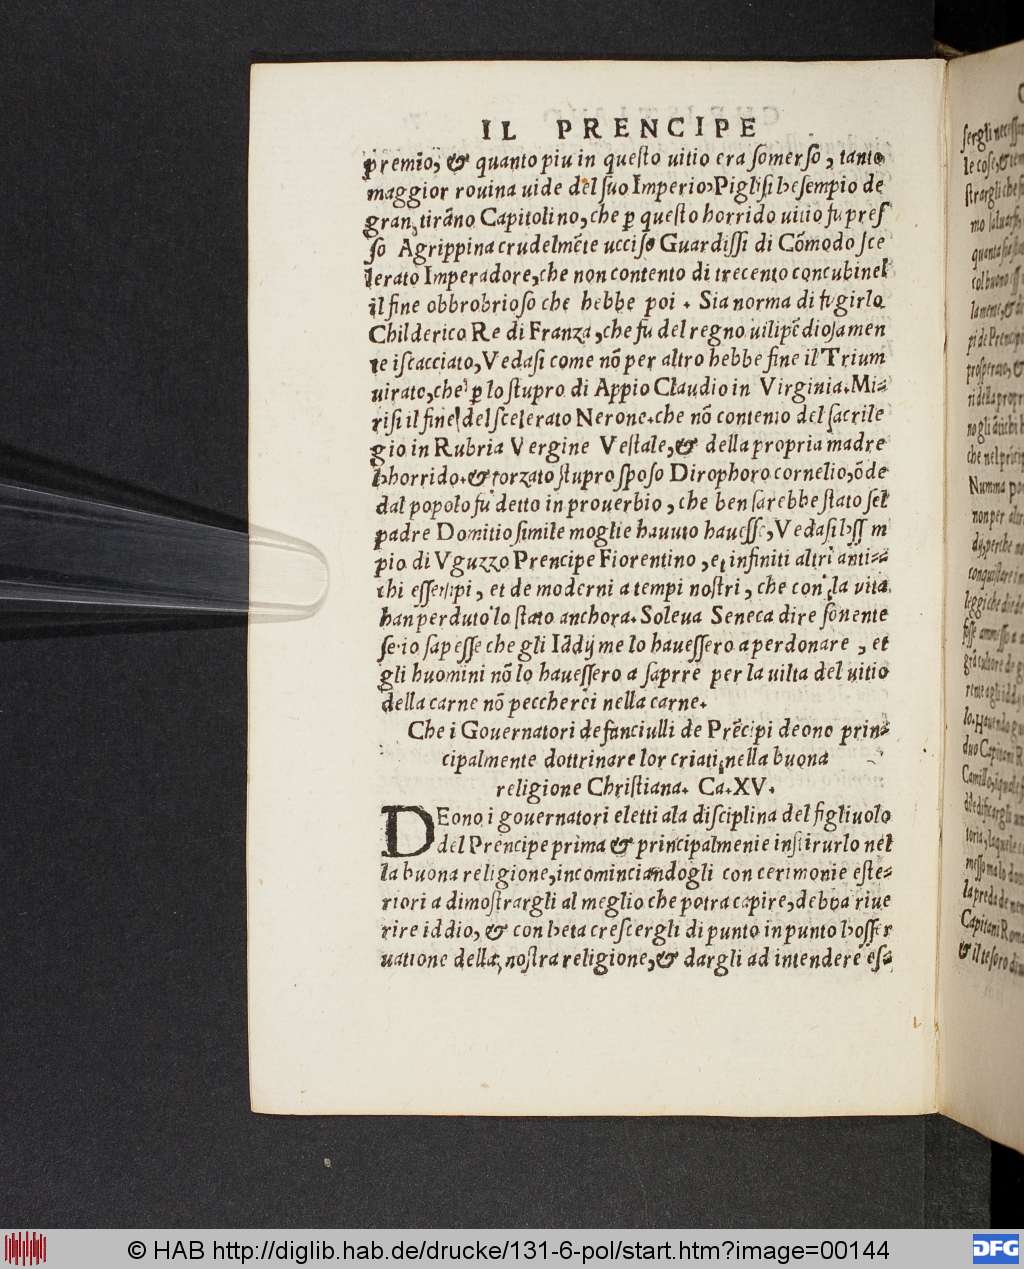 IL PRENCIPE
premio, & quanto piu in questo uitio era somerso, tanto
maggior rouina uide del suo Imperio, Piglisi hesempio de
gran tirāno Capitolino, che p questo horrido uitio fu pres
so Agrippina crudelmēte ucciso Guardissi di Cōmodo sce
lerato Imperadore, che non contento di trecento concubinel
il fine obbrobrioso che hebbe poi. Sia norma di fugirlo
Childerico Re di Franza, che fu del regno uilipēdiosamen
te iscacciato, Vedasi come nō per altro hebbe fine il Trium
uirato, che p lo stupro di Appio Claudio in Virginia. Mi-
risi il fine del scelerato Nerone. che nō contento del sacrile
gio in Rubria Vergine Vestale, & della propria madre
lhorrido. & forzato stupro sposo Dirophoro cornelio, ōde
dal popolo fu detto in prouerbio, che ben sarebbe stato sel
padre Domitio simile moglie hauuto hauesse, Vedasi
pio di Vguzzo Prencipe Fiorentino, et infiniti altri anti-
chi essempi, et de moderni a tempi nostri, che con la vita
han perduto lo stato anchora. Soleua Seneca dire sonente
se io sapesse che gli Iddij me lo hauessero a perdonare, et
gli huomini nō lo hauessero a saprre per la uilta del uitio
della carne nō peccherei nella carne.
Che i Gouernatori de fanciulli de Prēcipi deono prin-
cipalmente dottrinare lor criati nella buona
religione Christiana. Ca. XV.
DEono i gouernatori eletti ala disciplina del figliuolo
del Prencipe prima & principalmenie instirurlo nel
la buona religione, incominciandogli con cerimonie este-
riori a dimostrargli al meglio che potra capire, debba riue
rire iddio, & con heta crescergli di punto in punto losser
uatione della nostra religione, & dargli ad intendere es-
© HAB http://diglib.hab.de/drucke/131-6-pol/start.htm?image=00144
DFG